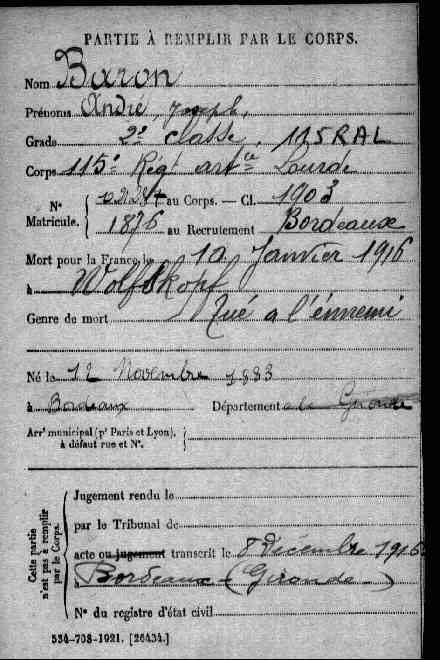 PARTIE À REMPLIR PAR LE CORPS.
Nom Baron
Prénoms André, Joseph,
Grade 2e classe, 115 RAL
Corps 115e Régt artie Lourde
N° Matricule. { au Corps. — Cl. 1903
1876 au Recrutement Bordeaux
Mort pour la France le 10 Janvier 1916
à Wolfskopf
Genre de mort Tué a l'énnemi
Né le 12 Novembre 1883
à Bordeaux Département de la Gironde
Arrt municipal (pr Paris et Lyon), à défaut rue et N°. {
Cette partie n'est pas à remplir par le Corps.
Jugement rendu le
par le Tribunal de
acte ou jugement transcrit le 8 Décembre 1916
à Bordeaux (Gironde)
N° du registre d'état civil
534-708-1921. [26434.]